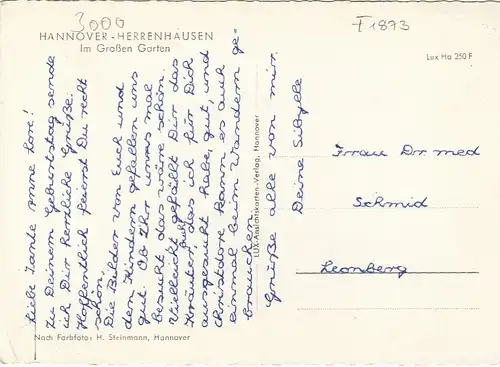 3000
I 1873
HANNOVER - HERRENHAUSEN
Im Großen Garten
Lux Ha 250 F
Liebe Tante Anne Lore!
Zu Deinem Geburtstag sende
ich Dir herzliche Grüße.
Hoffentlich feierst Du recht
schön.
Die Bilder von Euch und
den Kindern gefallen uns
gut. Ob Ihr uns mal
besucht das wäre schön.
Vielleicht gefällt Dir das
Kräuterbuch, das ich für Dich
ausgesucht habe, gut, und
Christdore kann es auch
einmal beim Wandern ge-
brauchen.
Grüße alle von mir.
Deine Sibylle
LUX-Ansichtskarten-Verlag, Hannover
Frau Dr. med
Schmid
Leonberg
Nach Farbfoto: H. Steinmann, Hannover